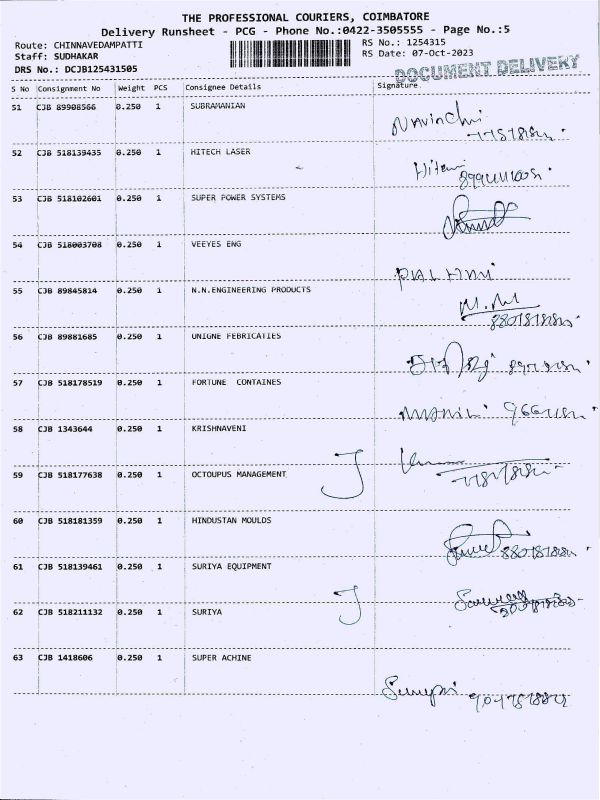 THE PROFESSIONAL COURIERS, COIMBATORE
Delivery Runsheet - PCG - Phone No.:0422-3505555 - Page No.:5
Route: CHINNAVEDAMPATTI RS No.: 1254315
Staff: SUDHAKAR RS Date: 07-Oct-2023
DRS No.: DCJB125431505
DOCUMENT DELIVERY
S No Consignment No Weight PCS Consignee Details Signature
51 CJB 89908566 0.250 1 SUBRAMANIAN
52 CJB 518139435 0.250 1 HITECH LASER
53 CJB 518102601 0.250 1 SUPER POWER SYSTEMS
54 CJB 518003708 0.250 1 VEEYES ENG
55 CJB 89845814 0.250 1 N.N.ENGINEERING PRODUCTS
56 CJB 89881685 0.250 1 UNIGNE FEBRICATIES
57 CJB 518178519 0.250 1 FORTUNE CONTAINES
58 CJB 1343644 0.250 1 KRISHNAVENI
59 CJB 518177638 0.250 1 OCTOUPUS MANAGEMENT
60 CJB 518181359 0.250 1 HINDUSTAN MOULDS
61 CJB 518139461 0.250 1 SURIYA EQUIPMENT
62 CJB 518211132 0.250 1 SURIYA
63 CJB 1418606 0.250 1 SUPER ACHINE